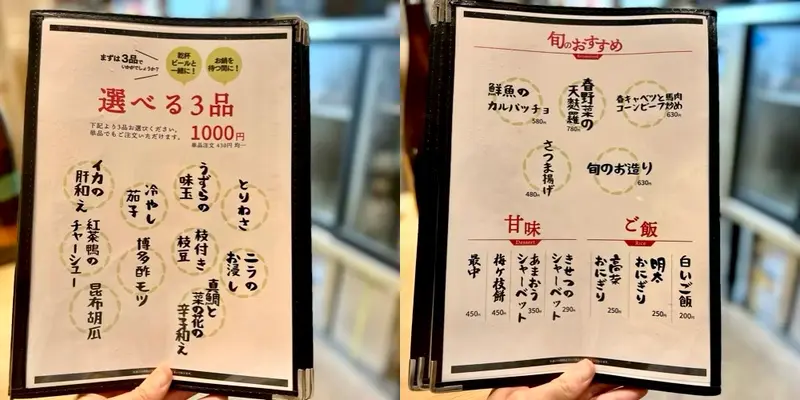 まずは3品で
いかがでしょうか?
乾杯
ビールと
一緒に!
お鍋を
待つ間に!
選べる3品
下記より3品お選びください。
単品でもご注文いただけます。
1000円
単品注文 430円 均一
とりわさ
うずらの
味玉
冷やし
茄子
イカの
肝和え
ニラの
お浸し
枝付き
枝豆
博多酢モツ
紅茶鴨の
チャーシュー
真鯛と
菜の花の
辛子和え
昆布胡瓜
旬のおすすめ
鮮魚の
カルパッチョ
580円
春野菜の
天麩羅
780円
春キャベツと馬肉
コーンビーフ炒め
630円
さつま揚げ
480円
旬のお造り
630円
甘味
Dessert
きせつの
シャーベット
290円
あまおう
シャーベット
350円
梅ヶ枝餅
450円
最中
450円
ご飯
Rice
白いご飯
200円
明太
おにぎり
250円
高菜
おにぎり
250円